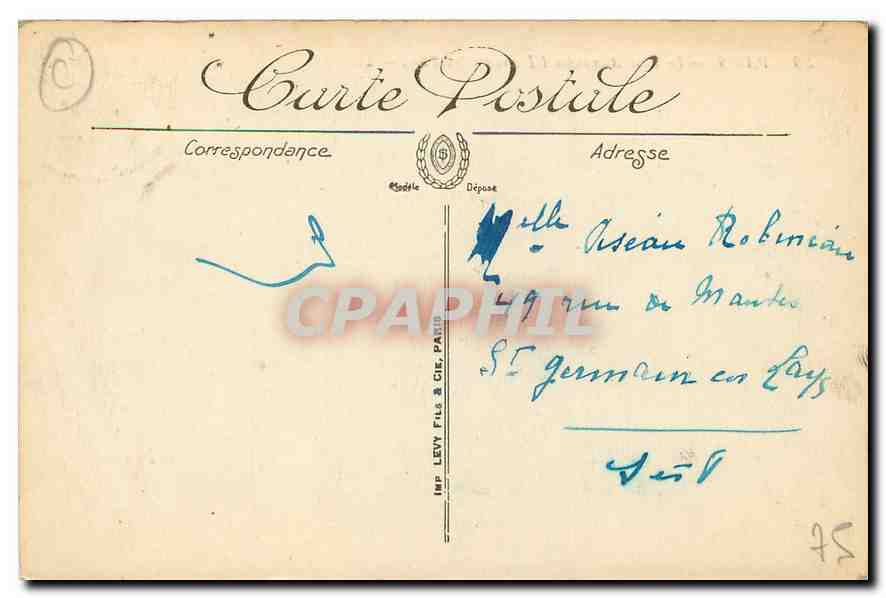 Carte Postale
Correspondance
Adresse
Modèle Déposé
CPAPHIL
IMP LEVY FILS & CIE, PARIS
Melle Robineau
49 rue de Mantes
St germain en Laye
75